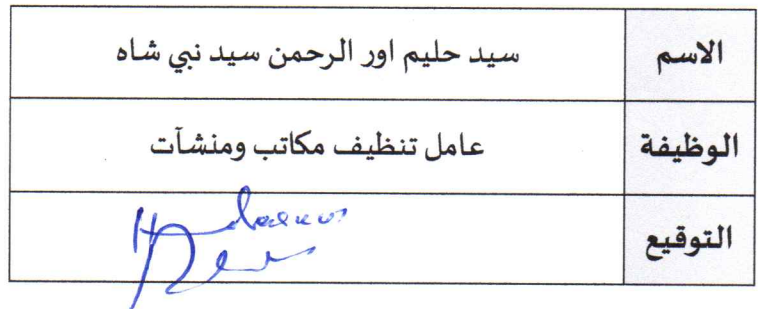 الاسم سيد حليم اور الرحمن سيد نبي شاه
الوظيفة عامل تنظيف مكاتب ومنشآت
التوقيع